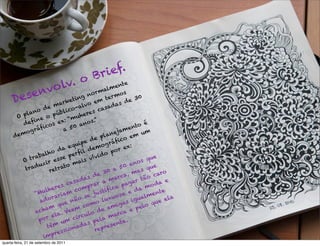 Desenvolv. o Brief.
O plano de marketing normalmente
define o público-alvo em termos
demográficos ex: "mulheres casadas de 30
a 50 anos."
O trabalho da equipe de planejamento é
traduzir esse perfil demográfico em um
retrato mais vívido por ex:
"Mulheres casadas de 30 a 50 anos que
adorariam comprar a marca, mas que
acham que não se justifica pagar tão caro
por ela. Veem como lançadora de moda e
têm um círculo de amigas igualmente
impressionadas pela marca e pelo que ela
representa."
quarta-feira, 21 de setembro de 2011